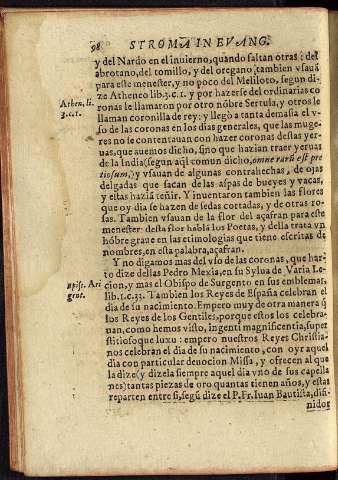 98 STROMA IN EVANG.
y del Nardo en el inuierno, quando faltan otras: del
abrotano, del tomillo, y del oregano, tambien vsauã
para este menester, y no poco del Meliloto, segun di-
Athen. li. 3.c.1.
ze Atheneo lib.3.c.1. y por hazerse del ordinarias co
ronas le llamaron por otro nõbre Sertula, y otros le
llaman coronilla de rey: y llegò a tanta demasia el v-
so de las coronas en los dias generales, que las muge-
res no se contentauan con hazer coronas destas yer-
uas, que auemos dicho, sino que hazian traer yeruas
de la India (segun aql comun dicho, omne rarũ est pre
tiosum,) y vsauan de algunas contrahechas, de ojas
delgadas que sacan de las aspas de bueyes y vacas,
y estas haziã teñir. Y inuentaron tambien las flores
que oy dia se hazen de sedas cortadas, y de otras ro-
sas. Tambien vsauan de la flor del açafran para este
menester: desta flor hablã los Poetas, y desta trata vn
hõbre graue en las etimologias que tiene escritas de
nombres, en esta palabra, açafran.
Y no digamos mas del vso de las coronas, que har-
to dize dellas Pedro Mexia, en su Sylua de Varia Le-
Epist. Ari
gent.
cion, y mas el Obispo de Surgento en sus emblemas,
lib.1.c.23. Tambien los Reyes de España celebran el
dia de su nacimiento. Empero muy de otra manera q̃
los Reyes de los Gentiles, porque estos los celebra-
uan, como hemos visto, ingenti magnificentia, super
stitiosoque luxu: empero nuestros Reyes Christia-
nos celebran el dia de su nacimiento, con oyr aquel
dia con particular deuocion Missa, y ofrecen al que
la dize (y dizela siempre aquel dia vno de sus capella
nes) tantas piezas de oro quantas tienen años, y estas
reparten entre si, segũ dize el P. Fr. Iuan Bautista, difi-
nidor